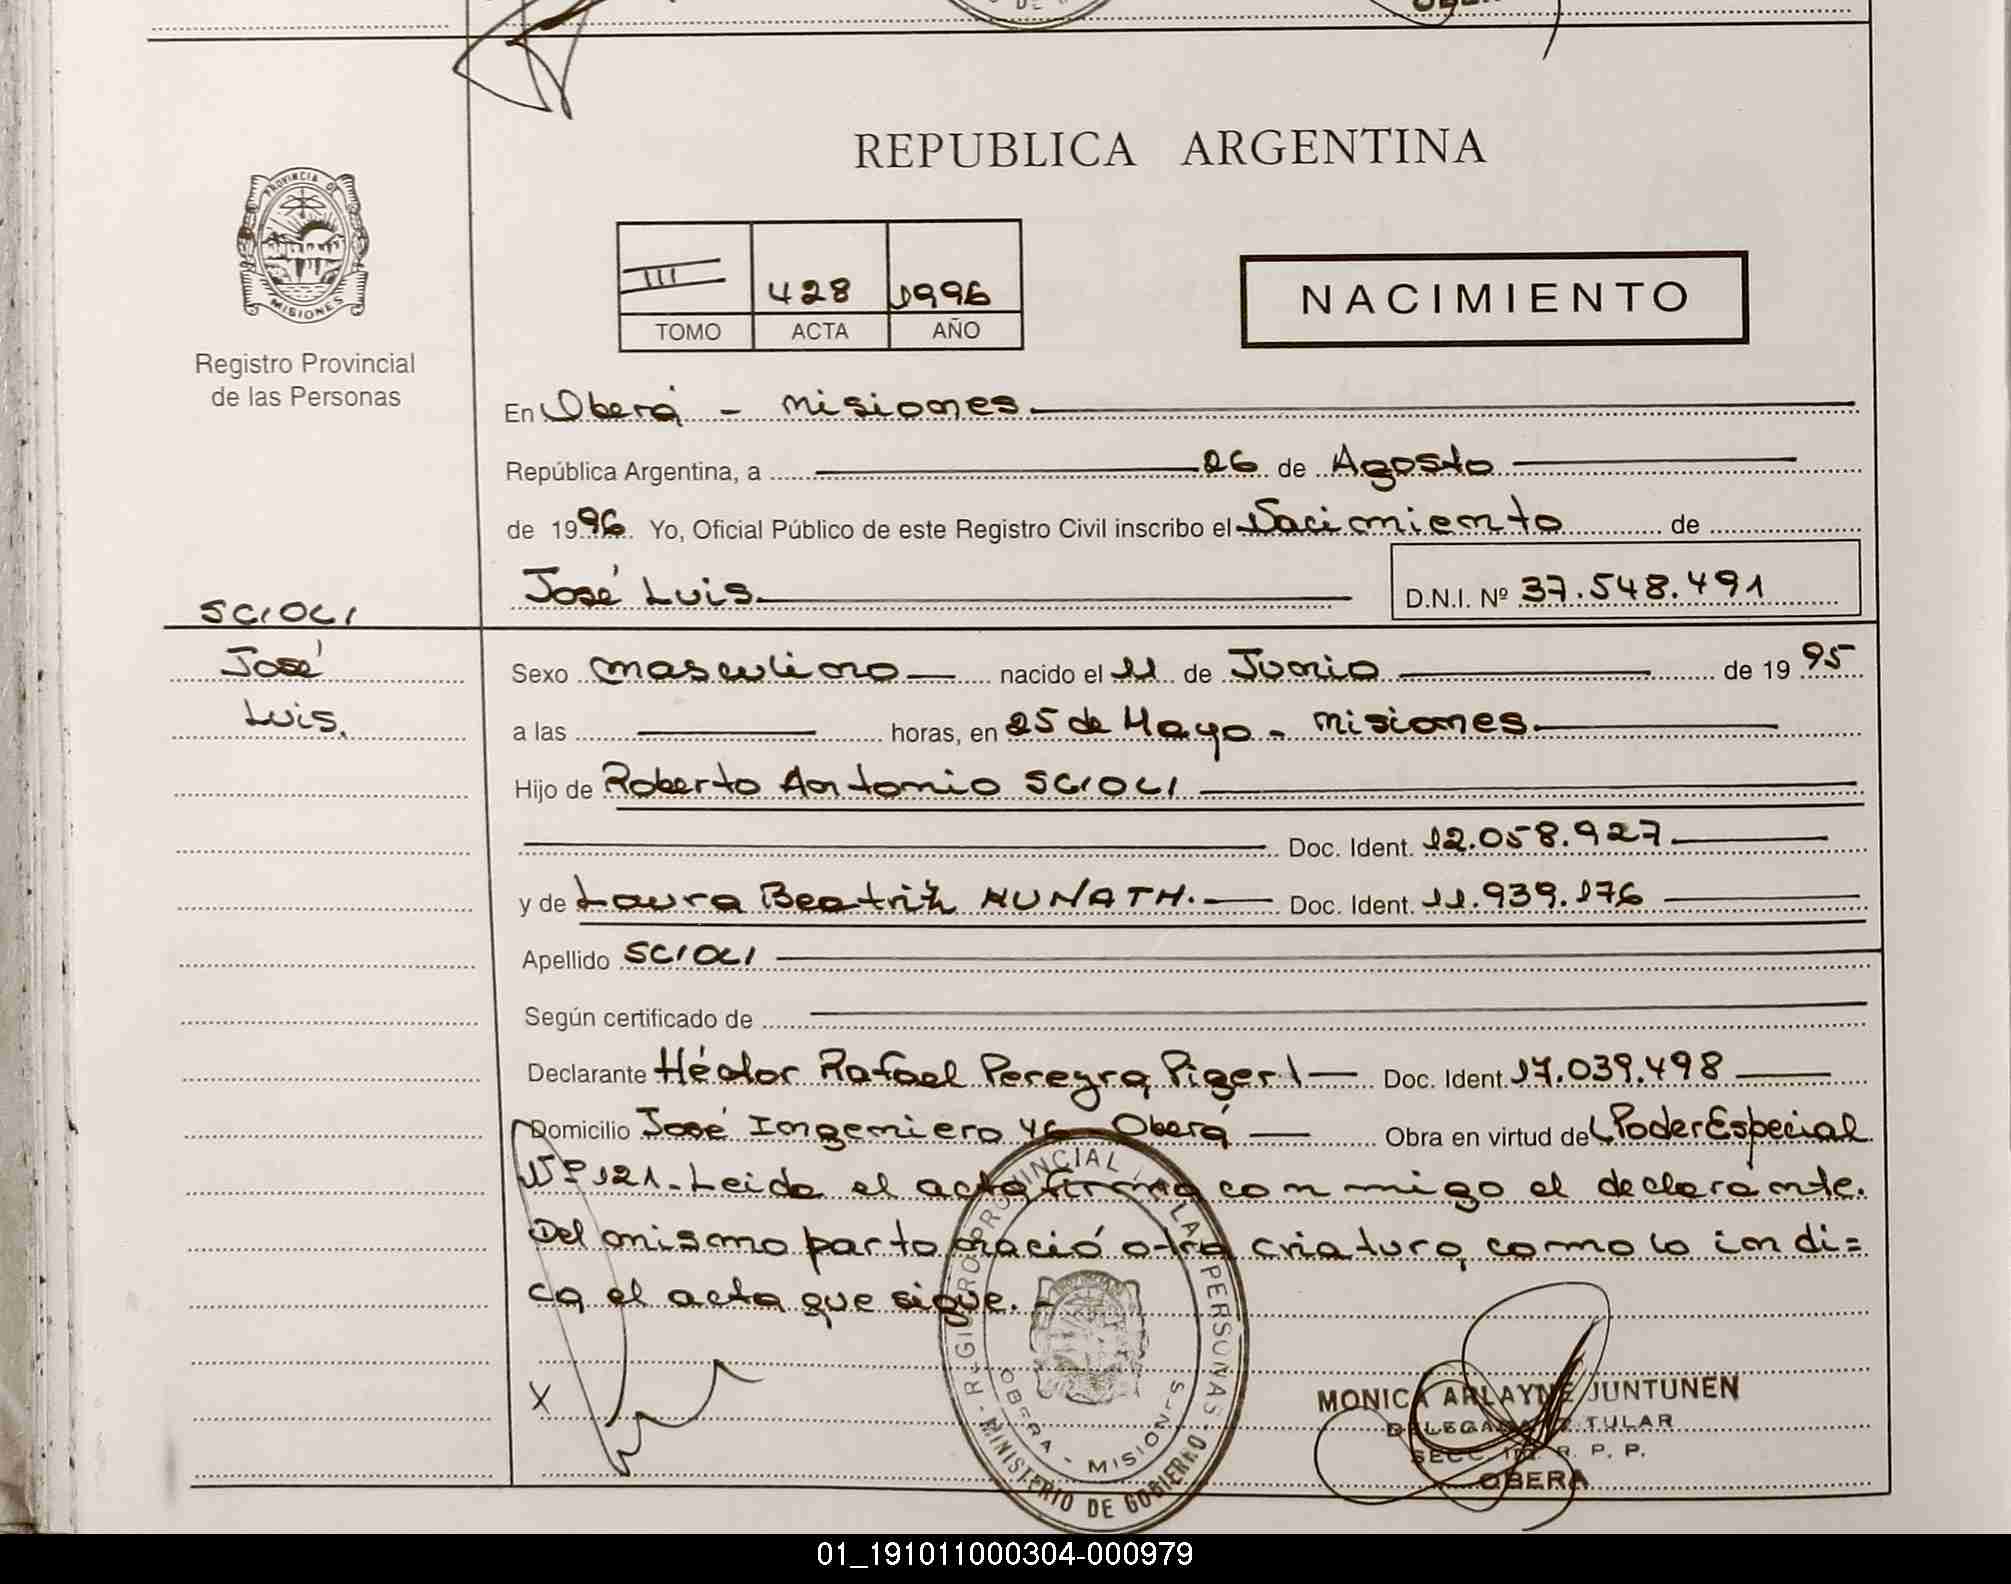 REPUBLICA ARGENTINA
PROVINCIA DE
MISIONES
Registro Provincial
de las Personas
III 428 1996
TOMO ACTA AÑO
NACIMIENTO
En Oberá - Misiones
República Argentina, a 26 de Agosto
de 1996. Yo, Oficial Público de este Registro Civil inscribo el Nacimiento de
José Luis D.N.I. Nº 37.548.491
SCIOLI
José
Luis.
Sexo masculino nacido el 11 de Junio de 1995
a las horas, en 25 de Mayo - Misiones
Hijo de Roberto Antonio SCIOLI
Doc. Ident. 12.058.927
y de Laura Beatriz HUNATH. Doc. Ident. 11.939.176
Apellido SCIOLI
Según certificado de
Declarante Héctor Rafael Pereyra Pigerl Doc. Ident. 17.039.498
Domicilio José Ingeniero 46 Oberá Obra en virtud de Poder Especial
Nº 121. Leida el acta firma conmigo el declarante.
Del mismo parto nació otra criatura, como lo indi=
ca el acta que sigue.-
X
REGISTRO PROVINCIAL DE LAS PERSONAS
OBERA - MISIONES
MINISTERIO DE GOBIERNO
MONICA ARLAYNE JUNTUNEN
DELEGADA TITULAR
SECC. R. P. P.
OBERA
01_191011000304-000979